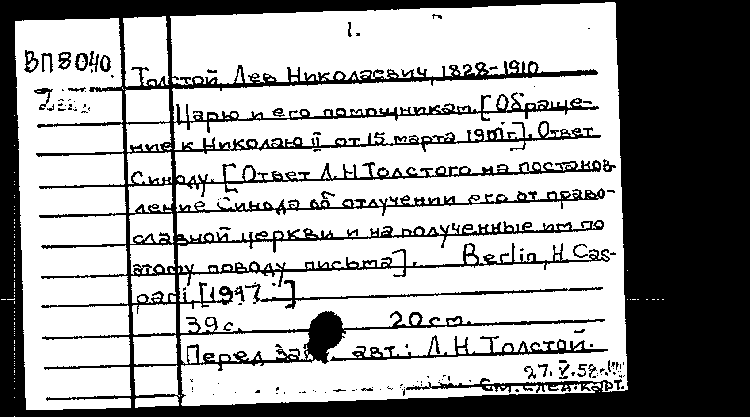 1.
ВП8040
Толстой, Лев Николаевич, 1828-1910
Царю и его помощникам. [Обраще-
ние к Николаю II от 15 марта 1901 г.]. Ответ
Синоду. [Ответ Л.Н.Толстого на постанов-
ление Синода об отлучении его от право-
славной церкви и на полученные им по
этому поводу письма]. Berlin, H. Cas-
pari, [19
39 с. 20 cm.
Перед авт.: Л.Н.Толстой.
27.V.58
См.след.карт.